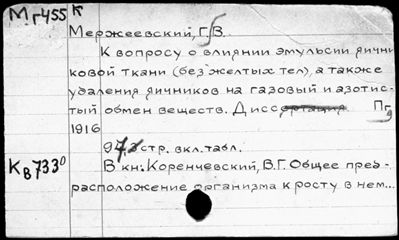 Мг455 к
Мержеевский, Г.В.
К вопросу о влиянии эмульсии яични
ковой ткани (без желтых тел), а также
удаления яичников на газовый и азотис-
тый обмен веществ. Диссертация Пг,
1916
97 стр. вкл. табл.
Кв733⁰ В кн: Коренчевский, В.Г. Общее пред-
расположение организма к росту в нем...